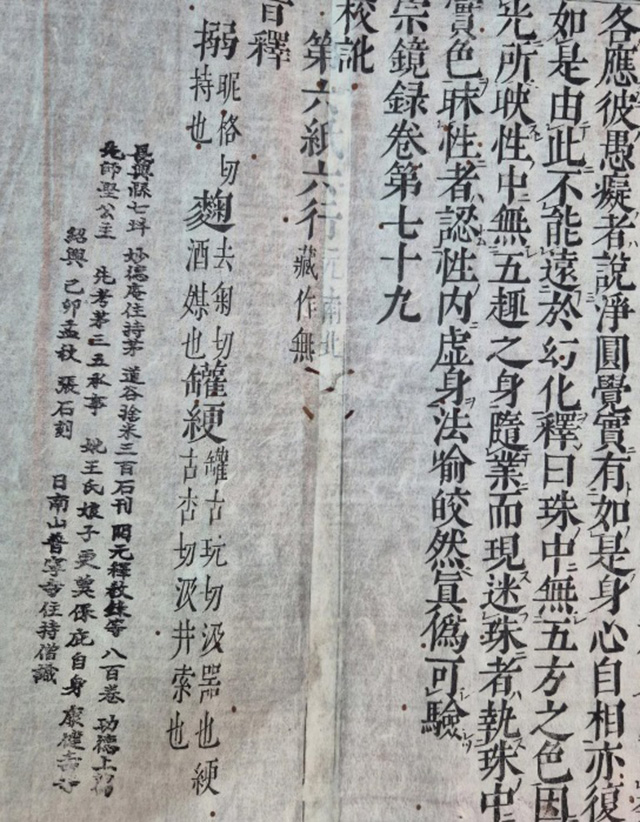 各應彼愚癡者說淨圓覺實有如是身心自相亦復
如是由此不能遠於幻化釋曰珠中無五方之色因
光所映性中無五趣之身隨業而現迷珠者執珠中
實色昧性者認性內虛身法喻皎然眞僞可驗
宗鏡錄卷第七十九
校訛
第六紙六行元南北藏作無
音釋
搦昵格切持也麴去匊切酒媒也罐綆罐古玩切汲器也綆古杏切汲井索也
長興縣七坪 妙德庵住持茅 道谷捨米三百石刊 開元釋教錄等 八百卷 功德上薦
先師堅公主 先考茅三五承事 妣王氏娘子更冀保庇自身 康健壽
紹興 己卯孟秋 張石刻 日南山普寧寺住持僧識